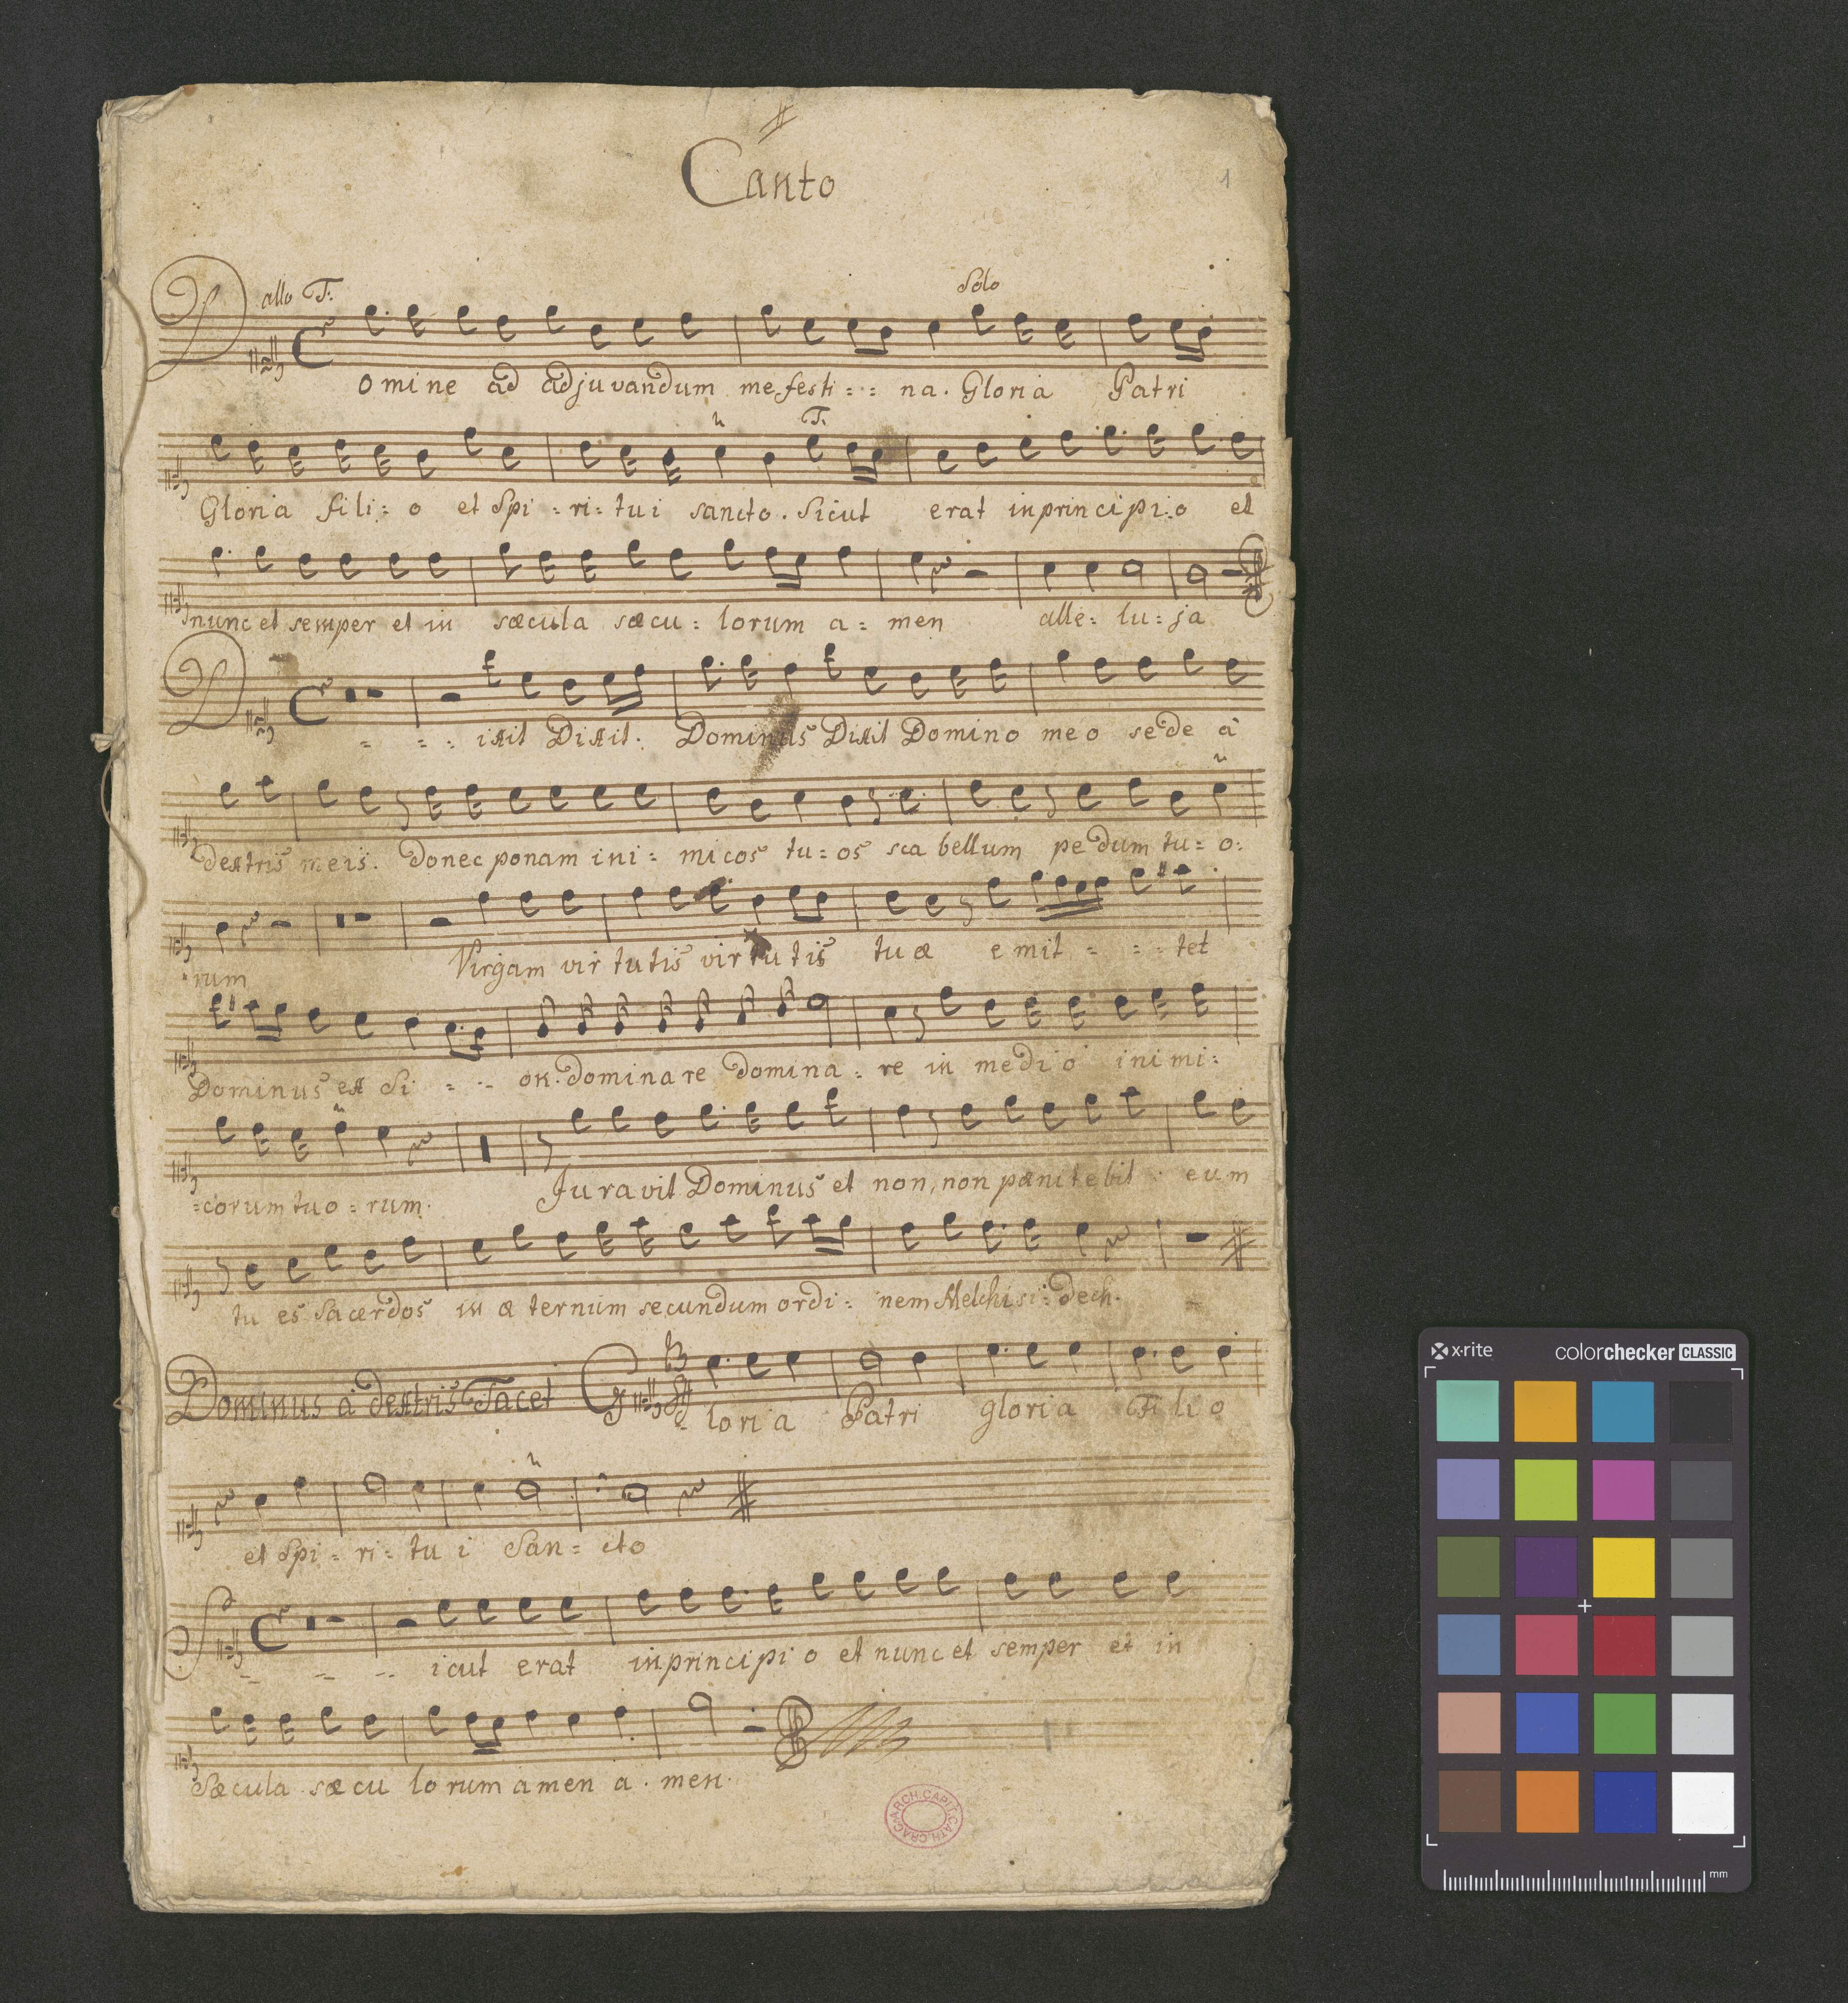 Canto
1
allo T: Solo
Domine ad adjuvandum me festi : : na . Gloria Patri
T.
Gloria fili : o et Spi : ri : tui sancto . Sicut erat in principi : o et
nunc et semper et in sæcula sæcu : lorum a : men alle : lu : ja
Dixit Dixit : Dominus Dixit Domino meo sede à
dextris meis . donec ponam ini : micos tu : os sca bellum pedum tu : o :
: rum Virgam vir tutis virtutis tuæ emit : : : tet
Dominus ex Si : : on . dominare domina : re in medio inimi :
: corum tuo : rum . Juravit Dominus et non, non pænitebit . eum
tu es Sacerdos in æternum secundum ordi : nem Melchisi : dech .
Dominus à dextris Tacet Gloria Patri gloria Filio
et Spi : ri : tu i San : cto
Sicut erat in principio et nunc et semper et in
Sæcula sæcu lorum amen a . men .
ARCH. CAPIT. CATH. CRAC.
x-rite colorchecker CLASSIC
mm